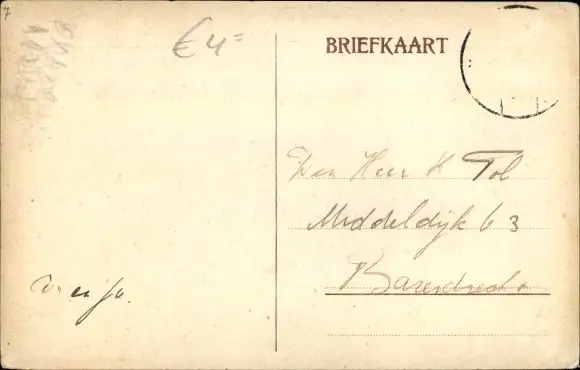 7
€ 4=
BRIEFKAART
Den Heer K Tol
Middeldijk 63
Barendrecht